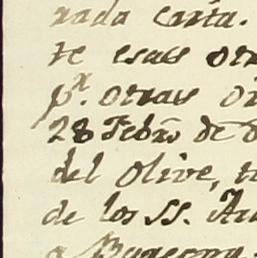 rada carta.
te esas otr
pr. otras Or
28 Febro de d
del Olive, t
de los SS. Au